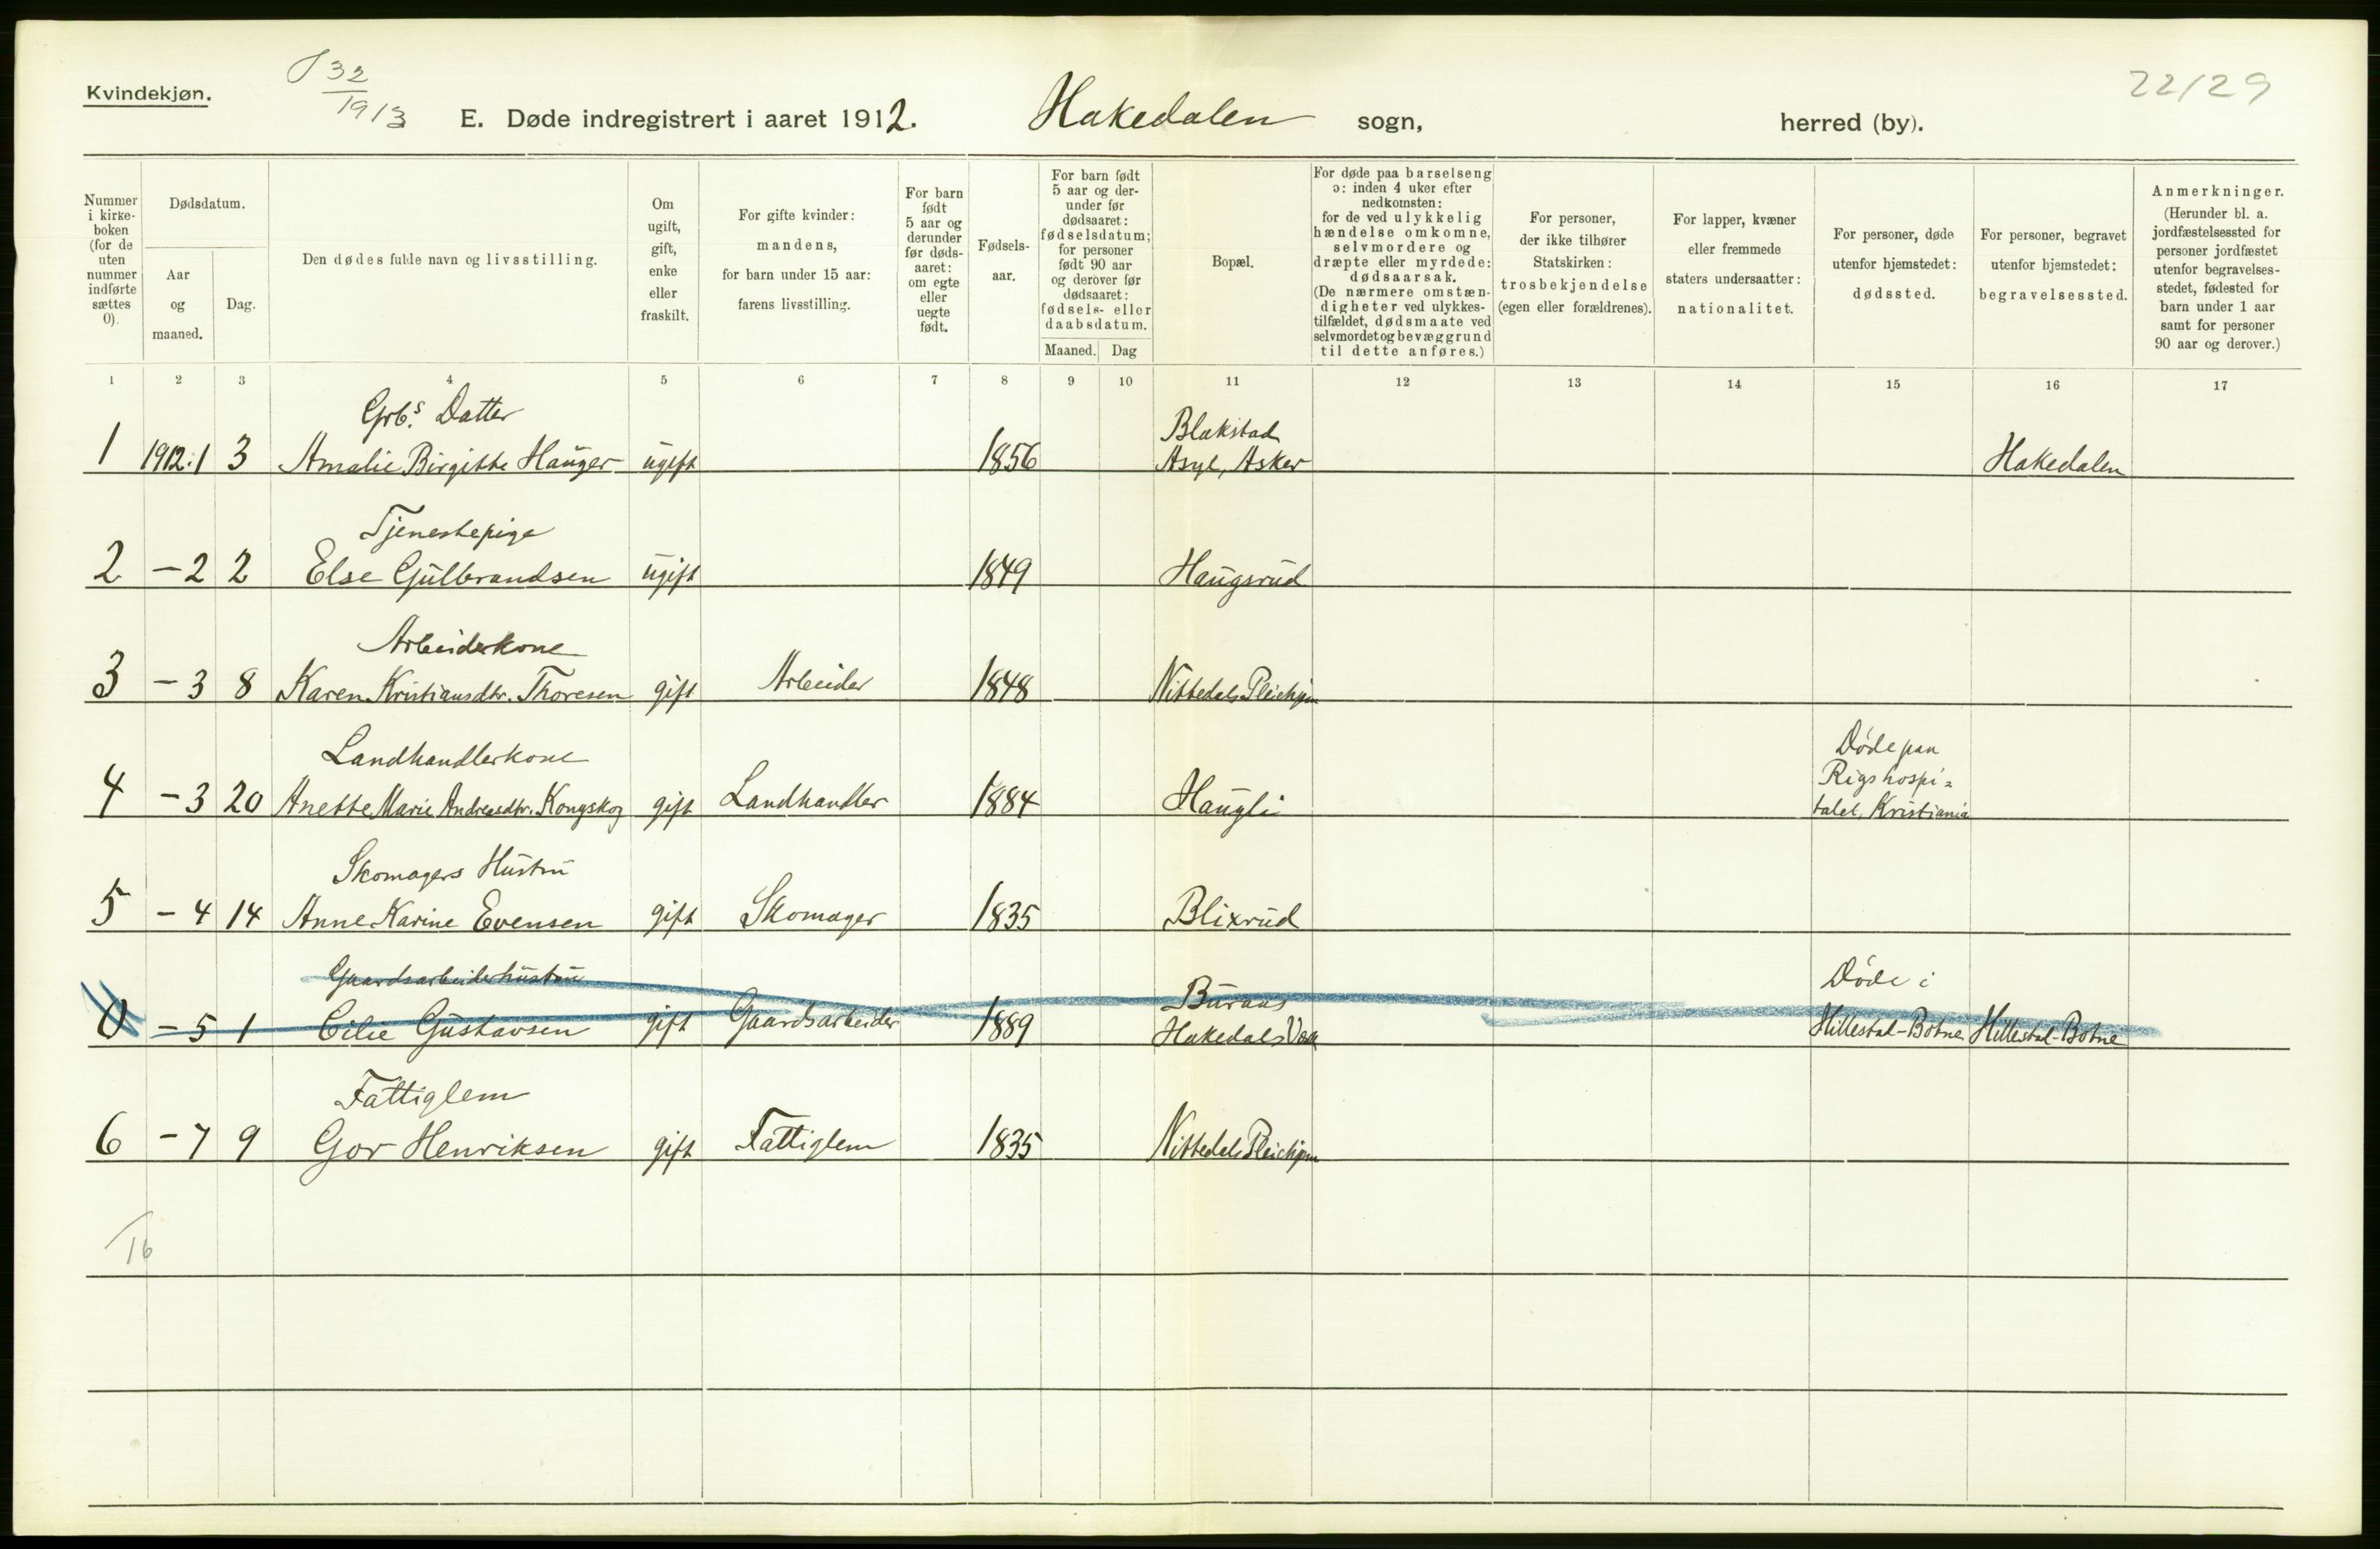 Kvindekjøn.
J 32
1913
22/29
E. Døde indregistrert i aaret 1912. Hakedalen sogn, herred (by).
Nummer i kirke-boken (for de uten nummer indførte sættes 0).
Dødsdatum.
Aar og maaned.
Dag.
Den dødes fulde navn og livsstilling.
Om ugift, gift, enke eller fraskilt.
For gifte kvinder: mandens, for barn under 15 aar: farens livsstilling.
For barn født 5 aar og derunder før døds-aaret: om egte eller uegte født.
Fødsels-aar.
For barn født 5 aar og der-under før dødsaaret: fødselsdatum; for personer født 90 aar og derover før dødsaaret: fødsels- eller daabsdatum.
Maaned. Dag
Bopæl.
For døde paa barselseng ɔ: inden 4 uker efter nedkomsten: for de ved ulykkelig hændelse omkomne, selvmordere og dræpte eller myrdede: dødsaarsak. (De nærmere omstæn-digheter ved ulykkes-tilfældet, dødsmaate ved selvmordet og bevæggrund til dette anføres.)
For personer, der ikke tilhører Statskirken: trosbekjendelse (egen eller forældrenes).
For lapper, kvæner eller fremmede staters undersaatter: nationalitet.
For personer, døde utenfor hjemstedet: dødssted.
For personer, begravet utenfor hjemstedet: begravelsessted.
Anmerkninger. (Herunder bl. a. jordfæstelsessted for personer jordfæstet utenfor begravelses-stedet, fødested for barn under 1 aar samt for personer 90 aar og derover.)
1 2 3 4 5 6 7 8 9 10 11 12 13 14 15 16 17
Grb.s Datter Blakstad
1 1912.1 3 Amalie Birgitte Hauger ugift 1856 Asyl, Asker Hakedalen
Tjenestepige
2 - 2 2 Else Gulbrandsen ugift 1849 Haugsrud
Arbeiderkone
3 - 3 8 Karen Kristiansdtr. Thoresen gift Arbeider 1848 Nittedals Pleiehjem
Landhandlerkone Døde paa
Rigshospi=
4 - 3 20 Anette Marie Andreasdtr. Kongskog gift Landhandler 1884 Haugli talet, Kristiania
Skomagers Hustru
5 - 4 14 Anne Karine Evensen gift Skomager 1835 Blixrud
Gaardsarbeiderhustru Buraas Døde i
0 - 5 1 Cilie Gustavsen gift Gaardsarbeider 1889 Hakedals Værk Hillestad-Botne Hillestad-Botne
Fattiglem
6 - 7 9 Gor Henriksen gift Fattiglem 1835 Nittedals Pleiehjem